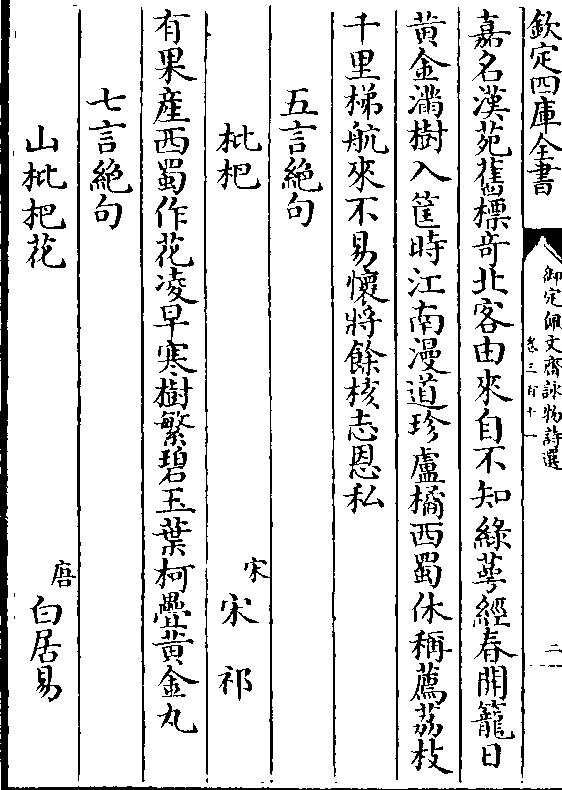 欽定四庫全書
御定佩文齋詠物詩選
卷三百十一
二
嘉名漢苑舊標奇北客由來自不知綠蕚經春開籠日
黃金滿樹入筐時江南漫道珍盧橘西蜀休稱薦荔枝
千里梯航來不易懷將餘核志恩私
五言絕句
枇杷
宋 宋祁
有果產西蜀作花凌早寒樹繁碧玉葉柯疊黃金丸
七言絕句
山枇杷花
唐 白居易